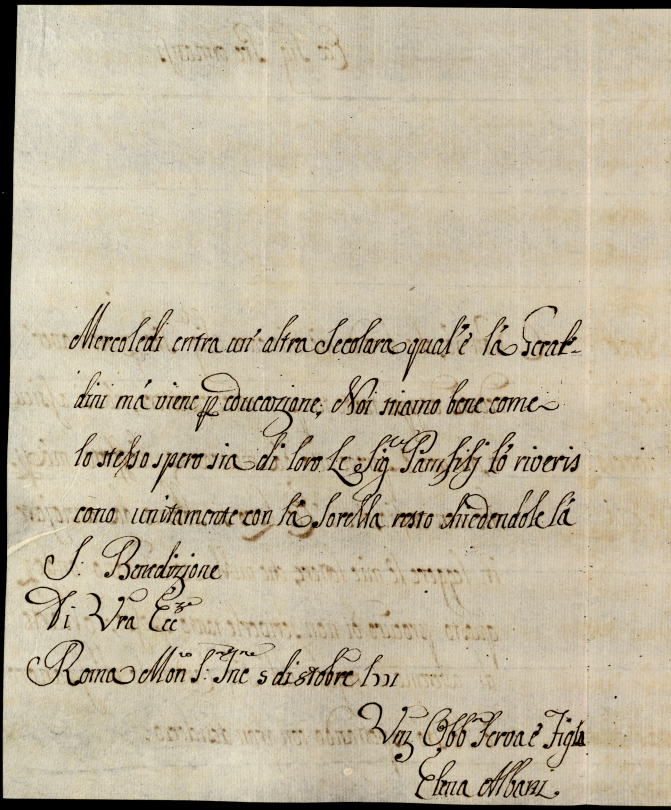 Mercoledi entra un' altra Secolara qual' è là Geral-
dini mà viene p educazione; Noi stiamo bene come
lo stesso spero sia di loro, Le Sig.re Panfilj lò riveris
cono unitamente con là Sorella resto chiedendole là
S: Benedizione
Di Vra Ecc.za
Roma Mon.ro S: di
Obb.ma serva è Figla
Elena Albani